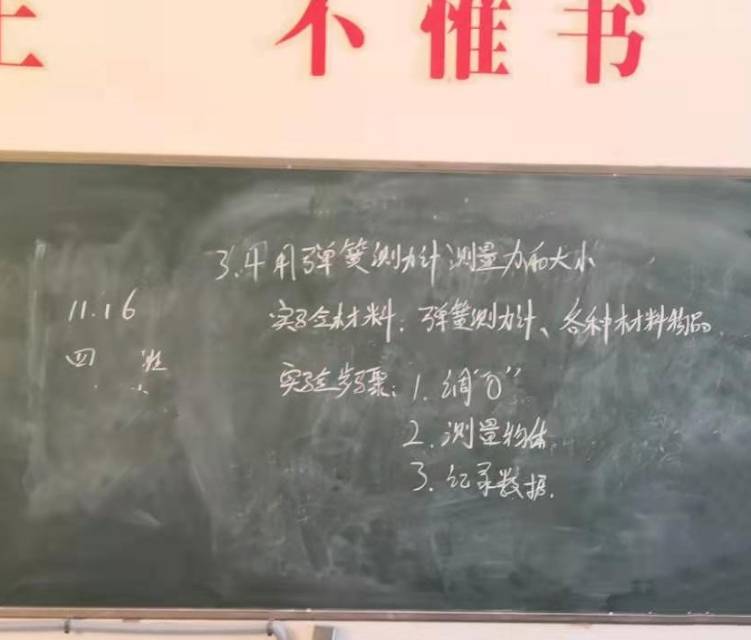 不惟书
3.4 用弹簧测力计测量力的大小
11.16
实验材料：弹簧测力计、各种材料物品.
四 班
实验步骤：1. 调“0”
2. 测量物体
3. 记录数据.